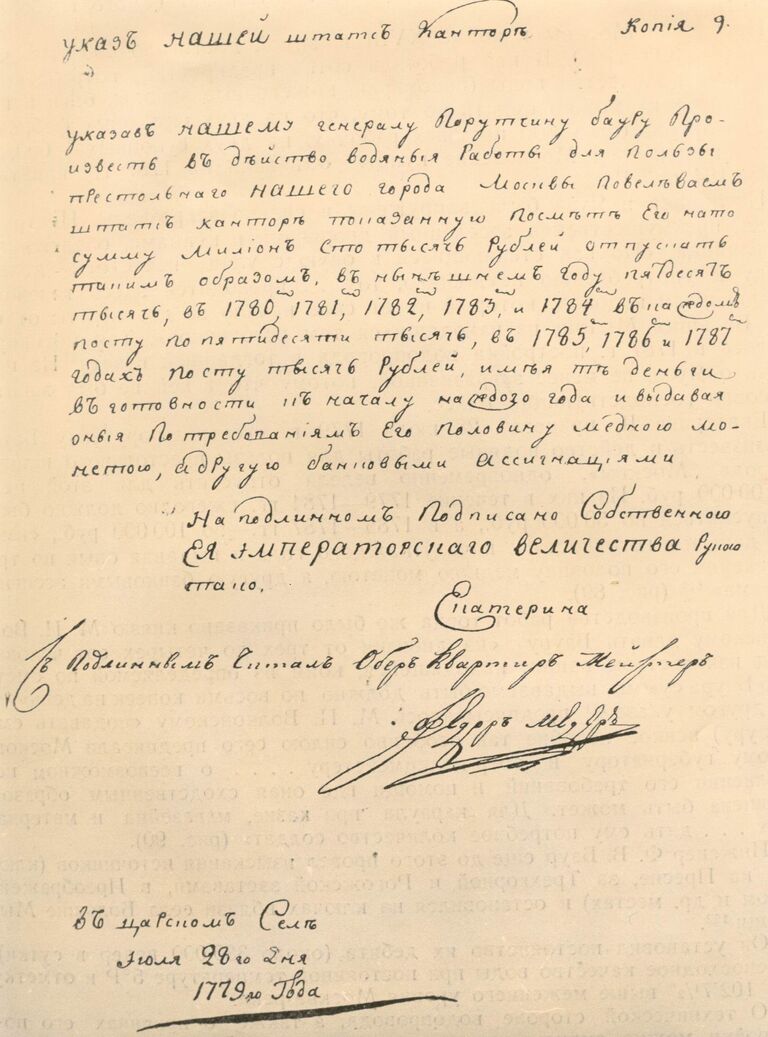 указъ нашей штатсъ Канторѣ Копія 9.
указавъ нашему генералу Порутчину бауру Про-
известь въ дѣйство водяныя Работы для пользы
престольнаго нашего города Москвы Повелѣваемъ
штатсъ канторѣ показанную Посмѣтѣ Его нато
сумму Миліонъ Сто тысячь Рублей отпускать
такимъ образомъ, въ нынѣшнемъ году пятдесятъ
тысячь, въ 1780, 1781, 1782, 1783, и 1784 въ каждомъ
посту попятидесяти тысячь, въ 1785, 1786 и 1787
годахъ посту тысячь Рублей, имѣя тѣ деньги
въ готовности къ началу каждого года и выдавая
оныя Потребованіямъ Его половину медною мо-
нетою, адругую банковыми Ассигнаціями
На подлинномъ Подписано Собственною
Ея императорскаго величества Рукою
тако,
Екатерина
Съ Подлиннымъ Читалъ Оберъ Квартиръ Мейстеръ
въ царскомъ Селѣ
июля 28го Дня
1779го Года